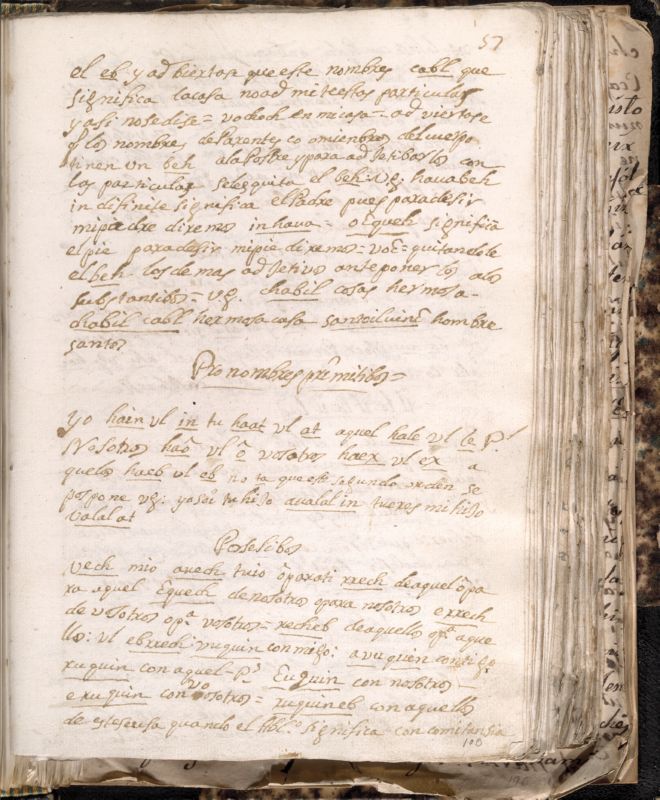 57
el eb y adbiertase que este nombres cabl que
significa la casa no admite estas particulas
y asi no se dise = vochoch en mi casa = adviertase
q los nombres de Parentesco o miembros del cuerpo
tinen un beh a la Postre y para adjetibarlos con
las particulas se le quita el beh. vg. hauabeh
indifinite significa el Padre pues para desir
mi padre diremos in haua =
significa
el pie para desir mi pie diremos =
quitandole
el beh. los de mas adjetivos anteponerlos a los
substantibos = vg. chabil cosas hermosa =
chabil cabl hermosa casa
hombre
santo
Pronombres primitibos =
Yo hain vl in tu haat vl at aquel hale vl le Pl
Nosotros haõ vl õ vosotros haex vl ex a
quellos haeb vl eb nota que este segundo orden se
pospone vg: yo soi tu hijo aualal in tu eres mi hijo
valalat
Posesibos
vech mio auech tuio o para ti rrech de aquel o pa
ra aquel
de nosotros o para nosotros errech
de vosotros o pa vosotros = recheb de aquellos o pa aque
llos: vl eb rech vuquin conmigo: auuquin contigo:
ruquin con aquel = Pl
con nosotros
eruquin con vosotros = ruquineb con aquellos
de este se usa quando el
significa con comitansia
100